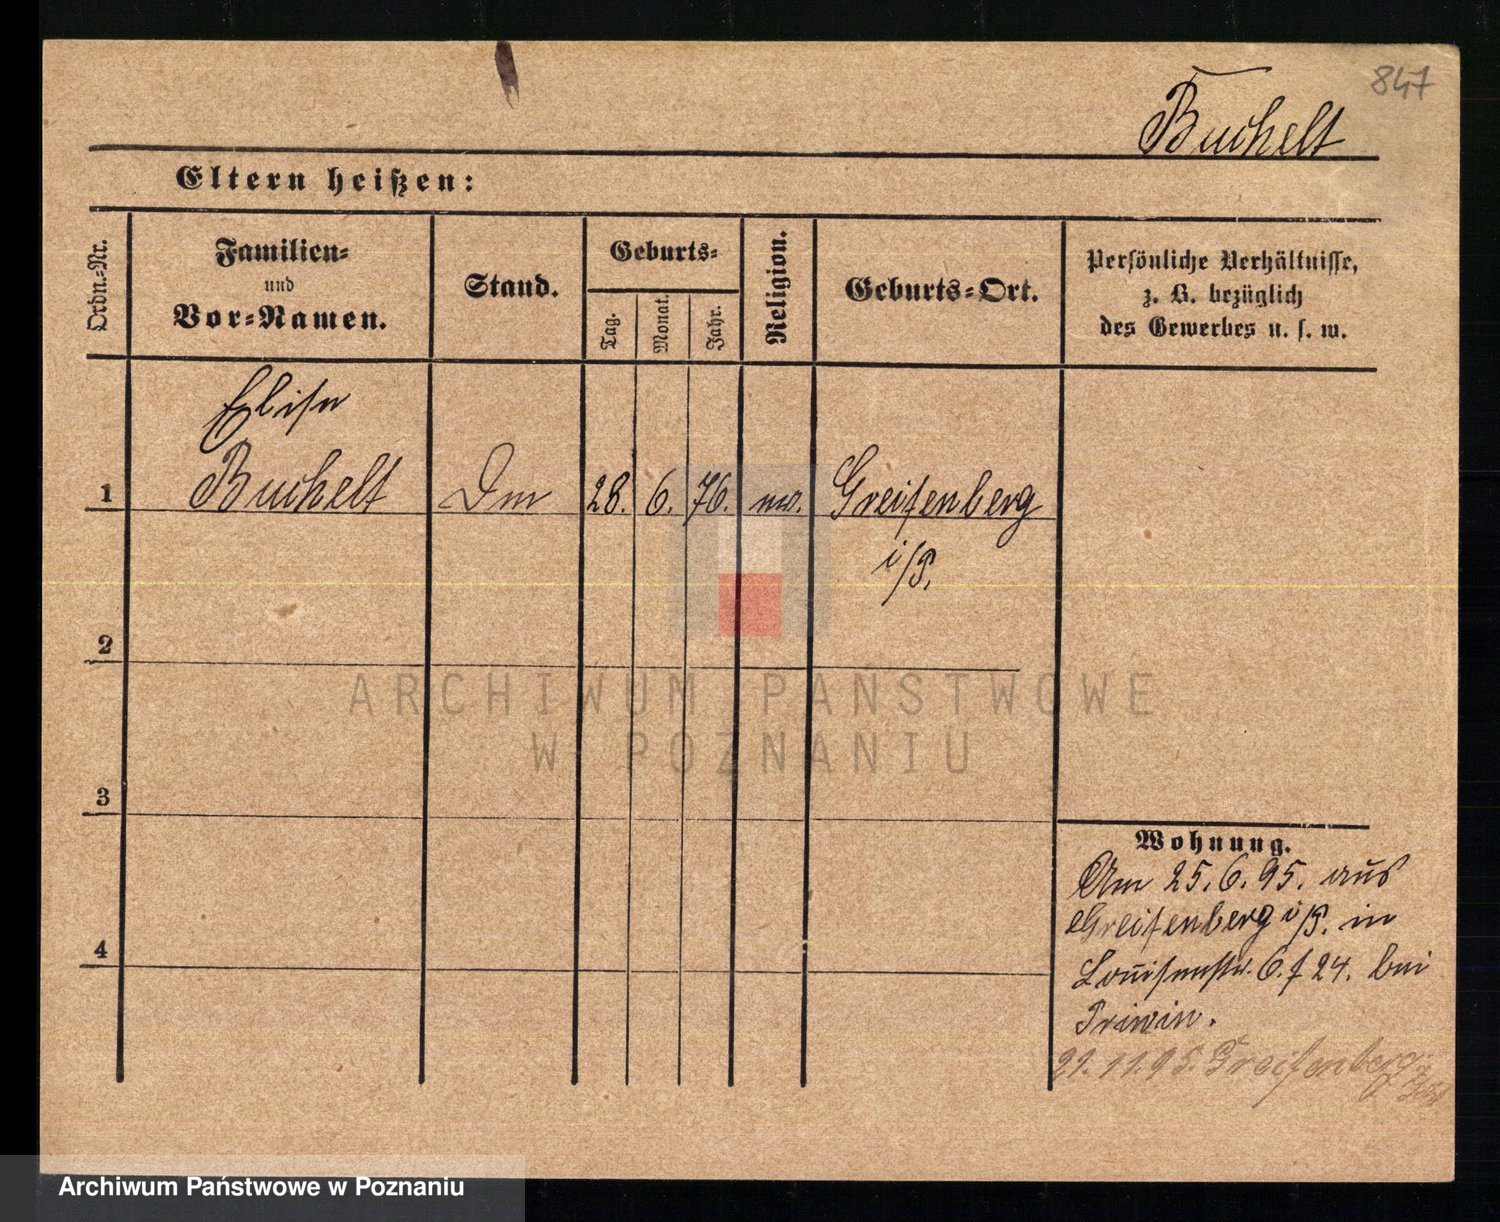 847
Buchelt
Eltern heißen:
Ordn.-Nr.
Familien-
und
Vor-Namen.
Stand.
Geburts-
Tag.
Monat.
Jahr.
Religion.
Geburts-Ort.
Persönliche Verhältnisse,
z. B. bezüglich
des Gewerbes u. s. w.
Elise
1 Buchelt 28. 6. 76. Greifenberg
i/P.
2
3
4
Wohnung.
Am 25.6.95. aus
Greifenberg i/P. in
Louisenstr. 6. f 24. bei
Priwin.
21.11.95. Greifenberg
ARCHIWUM PAŃSTWOWE
W POZNANIU
Archiwum Państwowe w Poznaniu